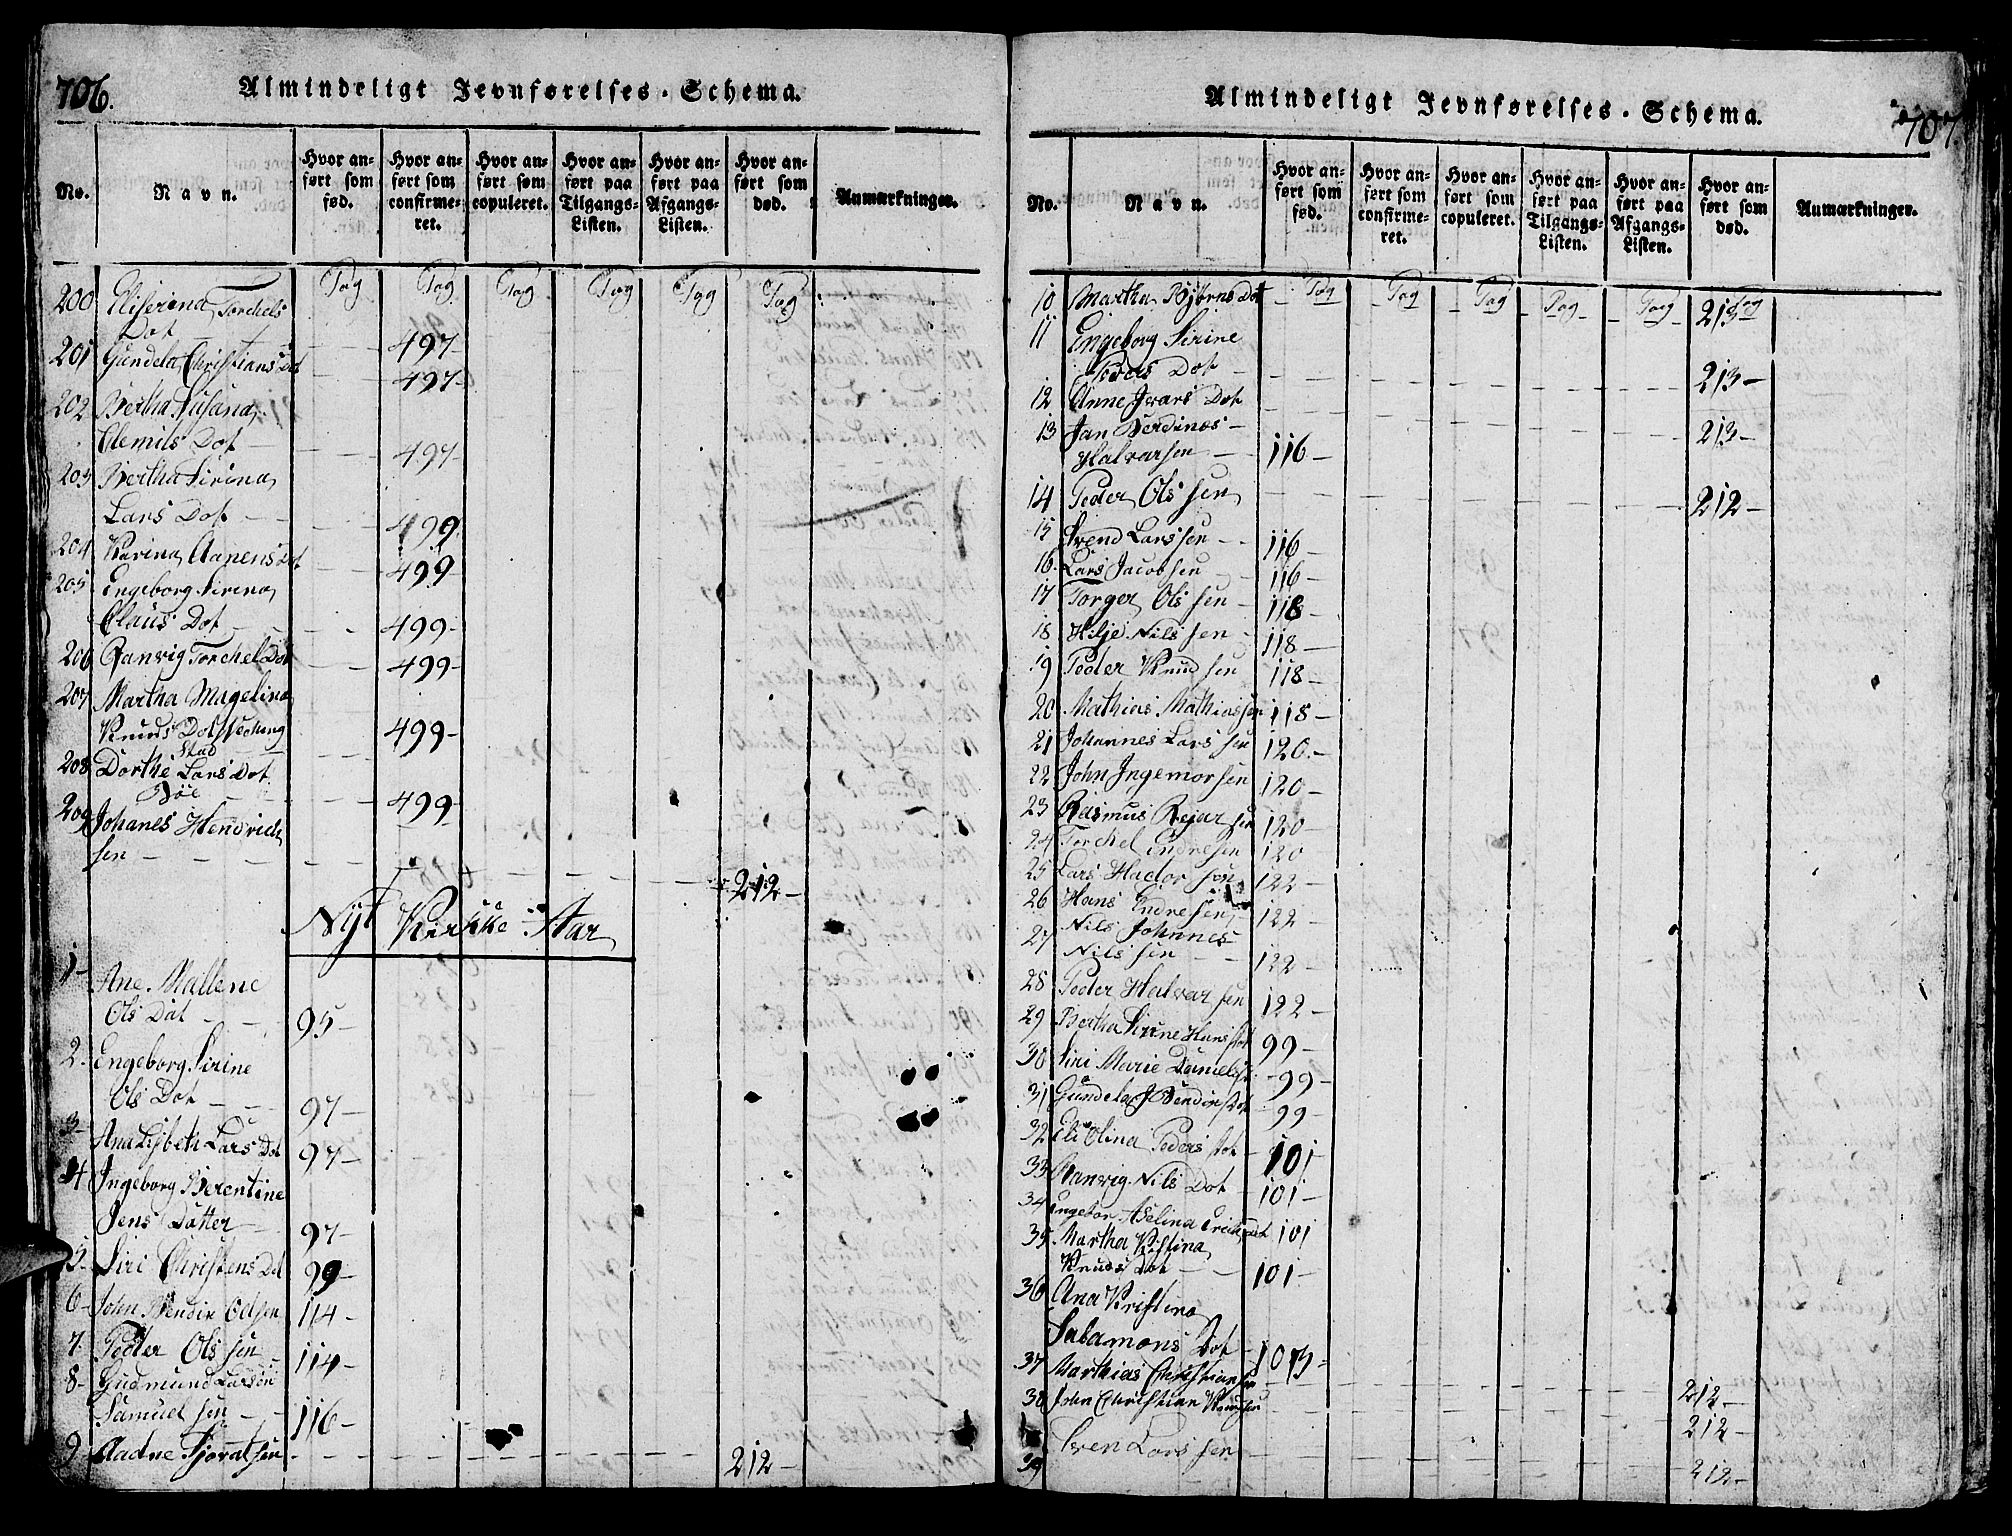 706.
Almindeligt Jevnførelses-Schema.
No.
Navn.
Hvor anført som fød.
Hvor anført som confirmeret.
Hvor anført som copuleret.
Hvor anført paa Tilgangs-Listen.
Hvor anført paa Afgangs-Listen.
Hvor anført som død.
Anmærkninger.
Pag Pag Pag Pag Pag Pag
200 Eliserina Torchels
Dot 497-
201 Gundela Christians Dot 497-
202 Bertha Susana
Clemils Dot 497-
203 Bertha Sirina
Lars Dot 499
204 Karina Aanens Dot 499-
205 Engeborg Sirina
Claus Dot 499-
206 Ranvig Torchel Dot 499-
207 Martha Magelina
Knuds Dot
stad 499-
208 Dorthe Lars Dot
Bøe 499-
209 Johanes Hendrich
sen 212-
Nyt Kirkke-Aar
1- Ane Mallene
Ols Dat 95-
2- Engeborg Sirine
Ols Dot 97-
3- Ana Lisbeth Lars Dot 97-
4 Ingeborg Berentine
Jens Datter 97-
5- Siri Christens Dot 99-
6- John Bendix Odsen 114-
7- Peder Ols sen 114-
8- Gudmund Larsøn
Samuel sen 116-
9- Aadne Sjovatsen 212-
707.
Almindeligt Jevnførelses-Schema.
No.
Navn.
Hvor anført som fød.
Hvor anført som confirmeret.
Hvor anført som copuleret.
Hvor anført paa Tilgangs-Listen.
Hvor anført paa Afgangs-Listen.
Hvor anført som død.
Anmærkninger.
Pag Pag Pag Pag Pag Pag
10 Martha Bjørns Dot 213
11 Engeborg Sirine
Peders Dot 213-
12 Anne Ivars Dot 213-
13 Jan Berdinos-
Halvarsen 116-
14 Peder Ols sen 212-
15 Svend Lars sen 116-
16 Lars Jacob sen 116-
17 Torger Ols sen 118-
18 Hilje Nils sen 118-
19 Peder Knud sen 118-
20 Mathias Mathias sen 118-
21 Johannes Lars sen 120-
22 John Ingemorsen 120-
23 Rasmus Rejar sen 120-
24 Torchel Endresen 120
25 Lars Hador søn 122-
26 Hans Endresen 122-
27 Nils Johannes
Nils sen 122-
28 Peder Halvar sen 122-
29 Bertha Sirine Hans Dot 99-
30 Siri Marie Daniels 99-
31 Gundela J Bendix Dot 99-
32 Eli Olina Peders Dot 101
33 Ranvig Nils Dot 101-
34 Engebor Aselina Erichs Dot 101
35 Martha Kistina
Knuds Dot 101-
36 Ana Kristina
Salamons Dot 103-
37 Marthias Christian sen 212-
38 John Christian Knudsen 212-
39 Sven Lars sen 212-